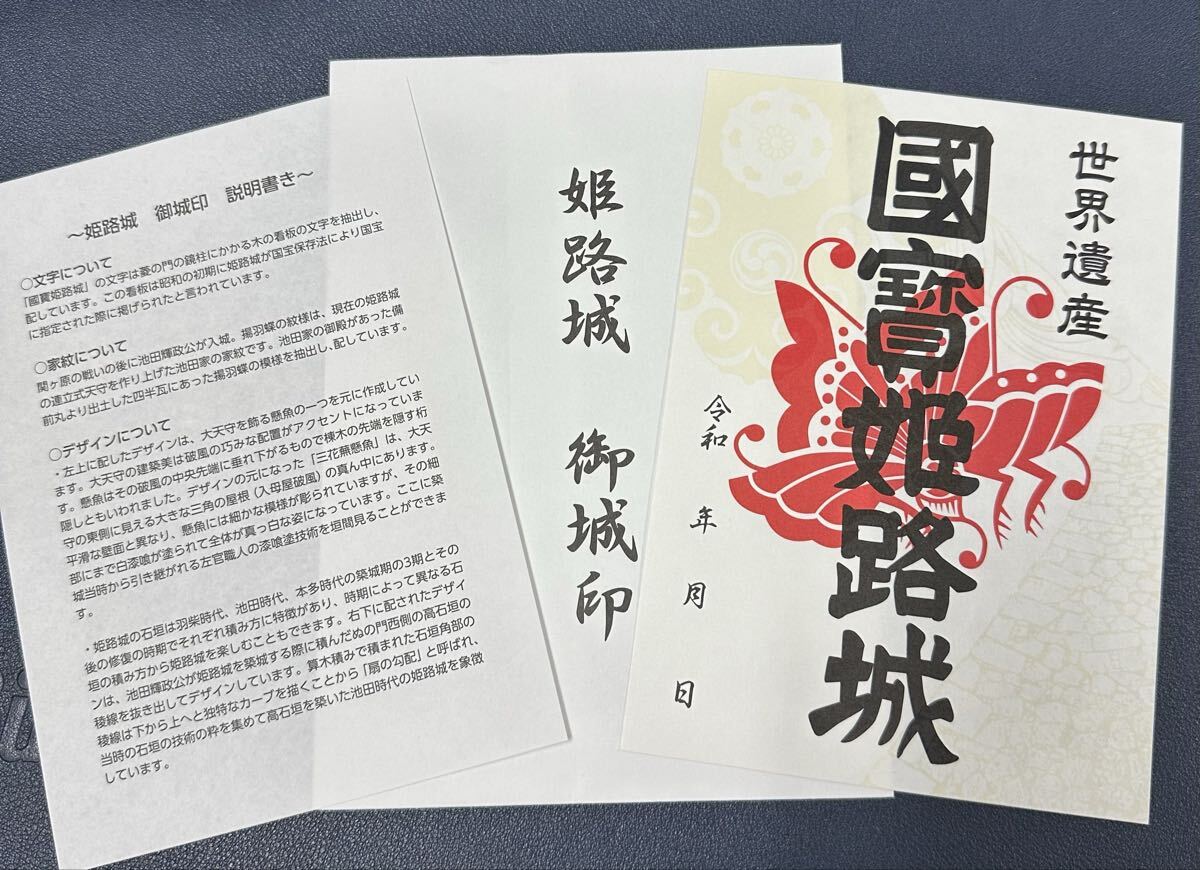 ～姫路城　御城印　説明書き～
○文字について
「國寳姫路城」の文字は菱の門の鏡柱にかかる木の看板の文字を抽出し、
配しています。この看板は昭和の初期に姫路城が国宝保存法により国宝
に指定された際に掲げられたと言われています。
○家紋について
関ヶ原の戦いの後に池田輝政公が入城。揚羽蝶の紋様は、現在の姫路城
の連立式天守を作り上げた池田家の家紋です。池田家の御殿があった備
前丸より出土した四半瓦にあった揚羽蝶の模様を抽出し、配しています。
○デザインについて
・左上に配したデザインは、大天守を飾る懸魚の一つを元に作成してい
ます。大天守の建築美は破風の巧みな配置がアクセントになっていま
す。懸魚はその破風の中央先端に垂れ下がるもので棟木の先端を隠す桁
隠しともいわれました。デザインの元になった「三花蕪懸魚」は、大天
守の東側に見える大きな三角の屋根（入母屋破風）の真ん中にあります。
平滑な壁面と異なり、懸魚には細かな模様が彫られていますが、その細
部にまで白漆喰が塗られて全体が真っ白な姿になっています。ここに築
城当時から引き継がれる左官職人の漆喰塗技術を垣間見ることができま
す。
・姫路城の石垣は羽柴時代、池田時代、本多時代の築城期の3期とその
後の修復の時期でそれぞれ積み方に特徴があり、時期によって異なる石
垣の積み方から姫路城を楽しむこともできます。右下に配されたデザイ
ンは、池田輝政公が姫路城を築城する際に積んだぬの門西側の高石垣の
稜線を抜き出してデザインしています。算木積みで積まれた石垣角部の
稜線は下から上へと独特なカーブを描くことから「扇の勾配」と呼ばれ、
当時の石垣の技術の粋を集めて高石垣を築いた池田時代の姫路城を象徴
しています。
姫路城　御城印
世界遺産
國寳姫路城
令和　年　月　日